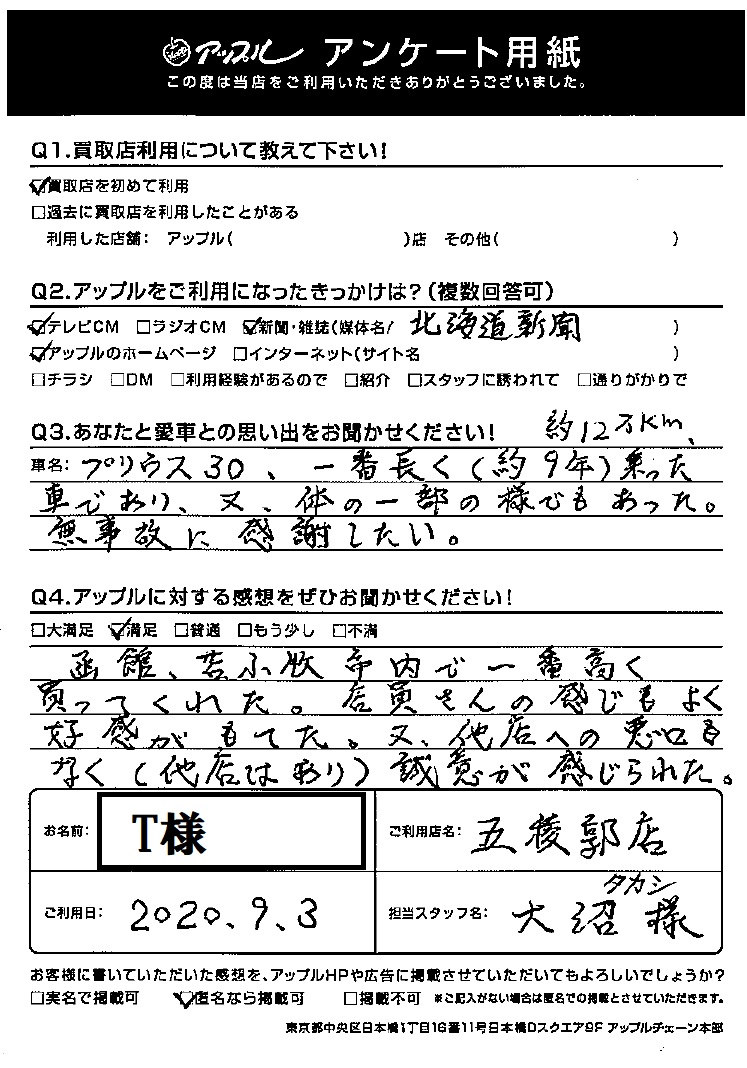 アップル アンケート用紙
この度は当店をご利用いただきありがとうございました。
Q1.買取店利用について教えて下さい!
☑買取店を初めて利用
□過去に買取店を利用したことがある
利用した店舗: アップル( )店 その他( )
Q2.アップルをご利用になったきっかけは?(複数回答可)
☑テレビCM □ラジオCM ☑新聞・雑誌(媒体名/ 北海道新聞 )
☑アップルのホームページ □インターネット(サイト名 )
□チラシ □DM □利用経験があるので □紹介 □スタッフに誘われて □通りがかりで
Q3.あなたと愛車との思い出をお聞かせください! 約12万Km、
車名: プリウス30、一番長く(約9年)乗った
車であり、又、体の一部の様でもあった。
無事故に感謝したい。
Q4.アップルに対する感想をぜひお聞かせください!
□大満足 ☑満足 □普通 □もう少し □不満
函館、苫小牧市内で一番高く
買ってくれた。店員さんの感じもよく
好感がもてた。又、他店への悪口も
なく(他店はあり)誠意が感じられた。
お名前: T様 ご利用店名: 五稜郭店
ご利用日: 2020.9.3 担当スタッフ名: 大沼タカシ様
お客様に書いていただいた感想を、アップルHPや広告に掲載させていただいてもよろしいでしょうか?
□実名で掲載可 ☑匿名なら掲載可 □掲載不可 ※ご記入がない場合は匿名での掲載とさせていただきます。
東京都中央区日本橋1丁目16番11号日本橋Dスクエア9F アップルチェーン本部